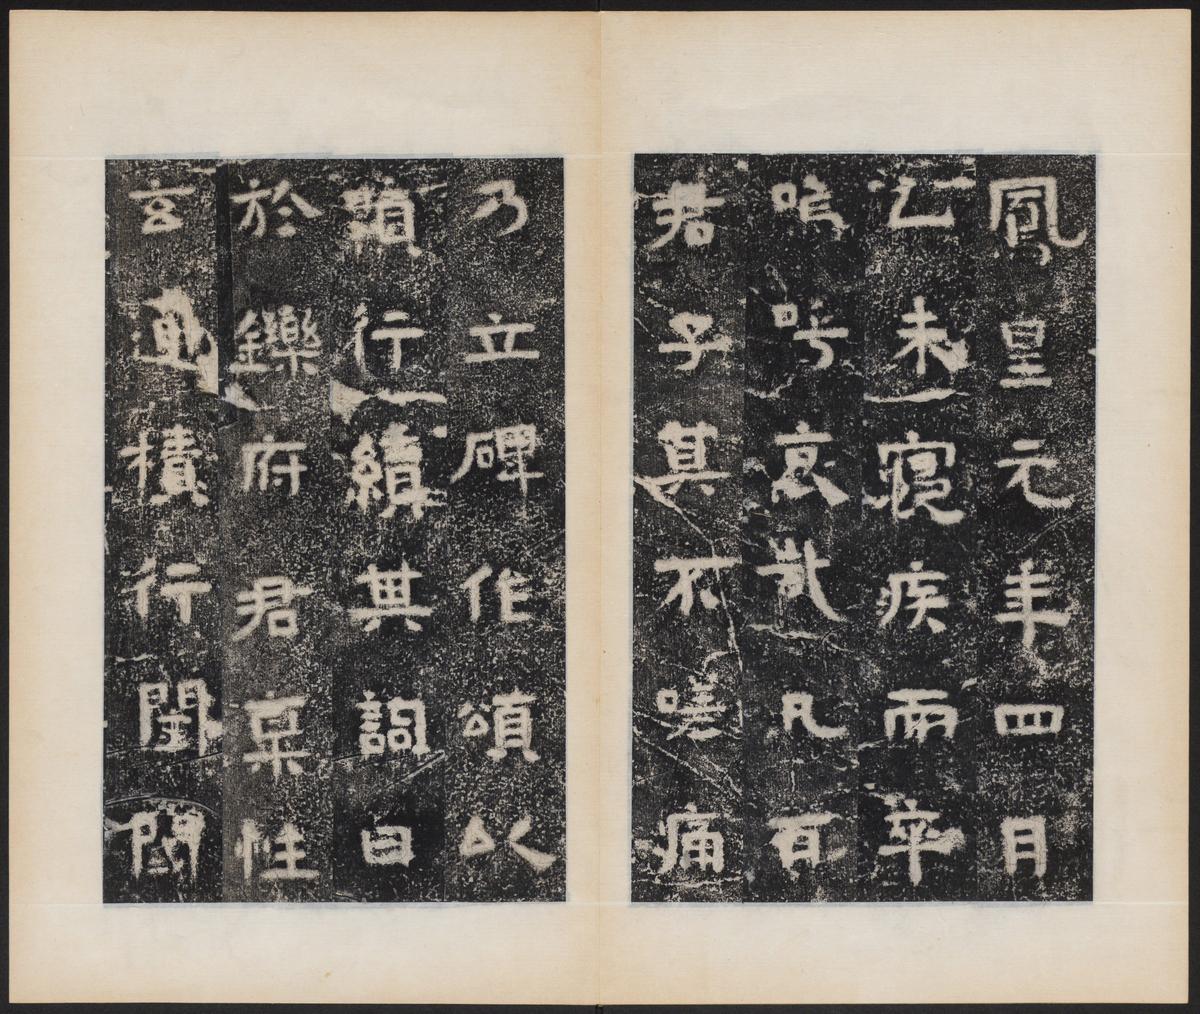 鳳皇元年四月
乙未寑疾而卒
嗚呼哀哉凡百
君子莫不嗟痛
乃立碑作頌以
顯行績其詞曰
於鑠府君稟性
玄通積行閨閤